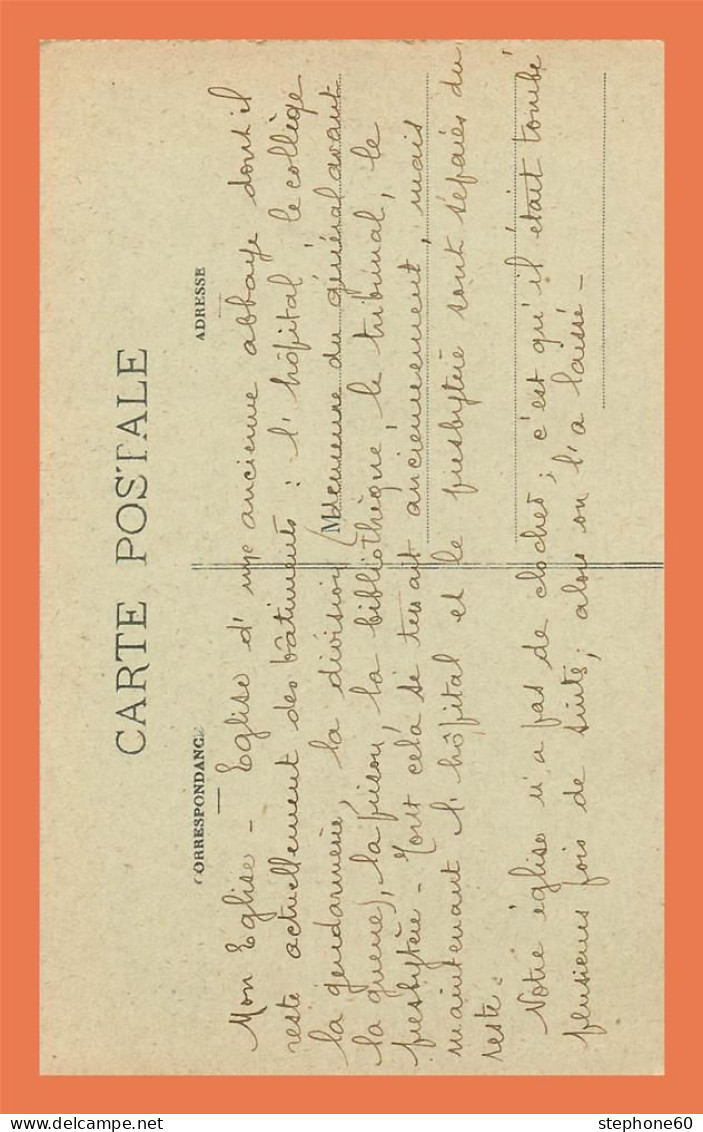 CARTE POSTALE
CORRESPONDANCE
ADRESSE
Mon Eglise - Eglise d'une ancienne abbaye dont il
reste actuellement des bâtiments : l'hôpital, le collège
la gendarmerie, la division (demeure du général avant
M
la guerre), la prison, la bibliothèque, le tribunal, le
presbytère - Tout cela se tenait anciennement, mais
maintenant l'hôpital et le presbytère sont séparés du
reste.
Notre église n'a pas de clocher ; c'est qu'il était tombé
plusieurs fois de suite ; alors on l'a laissé -
stephone60